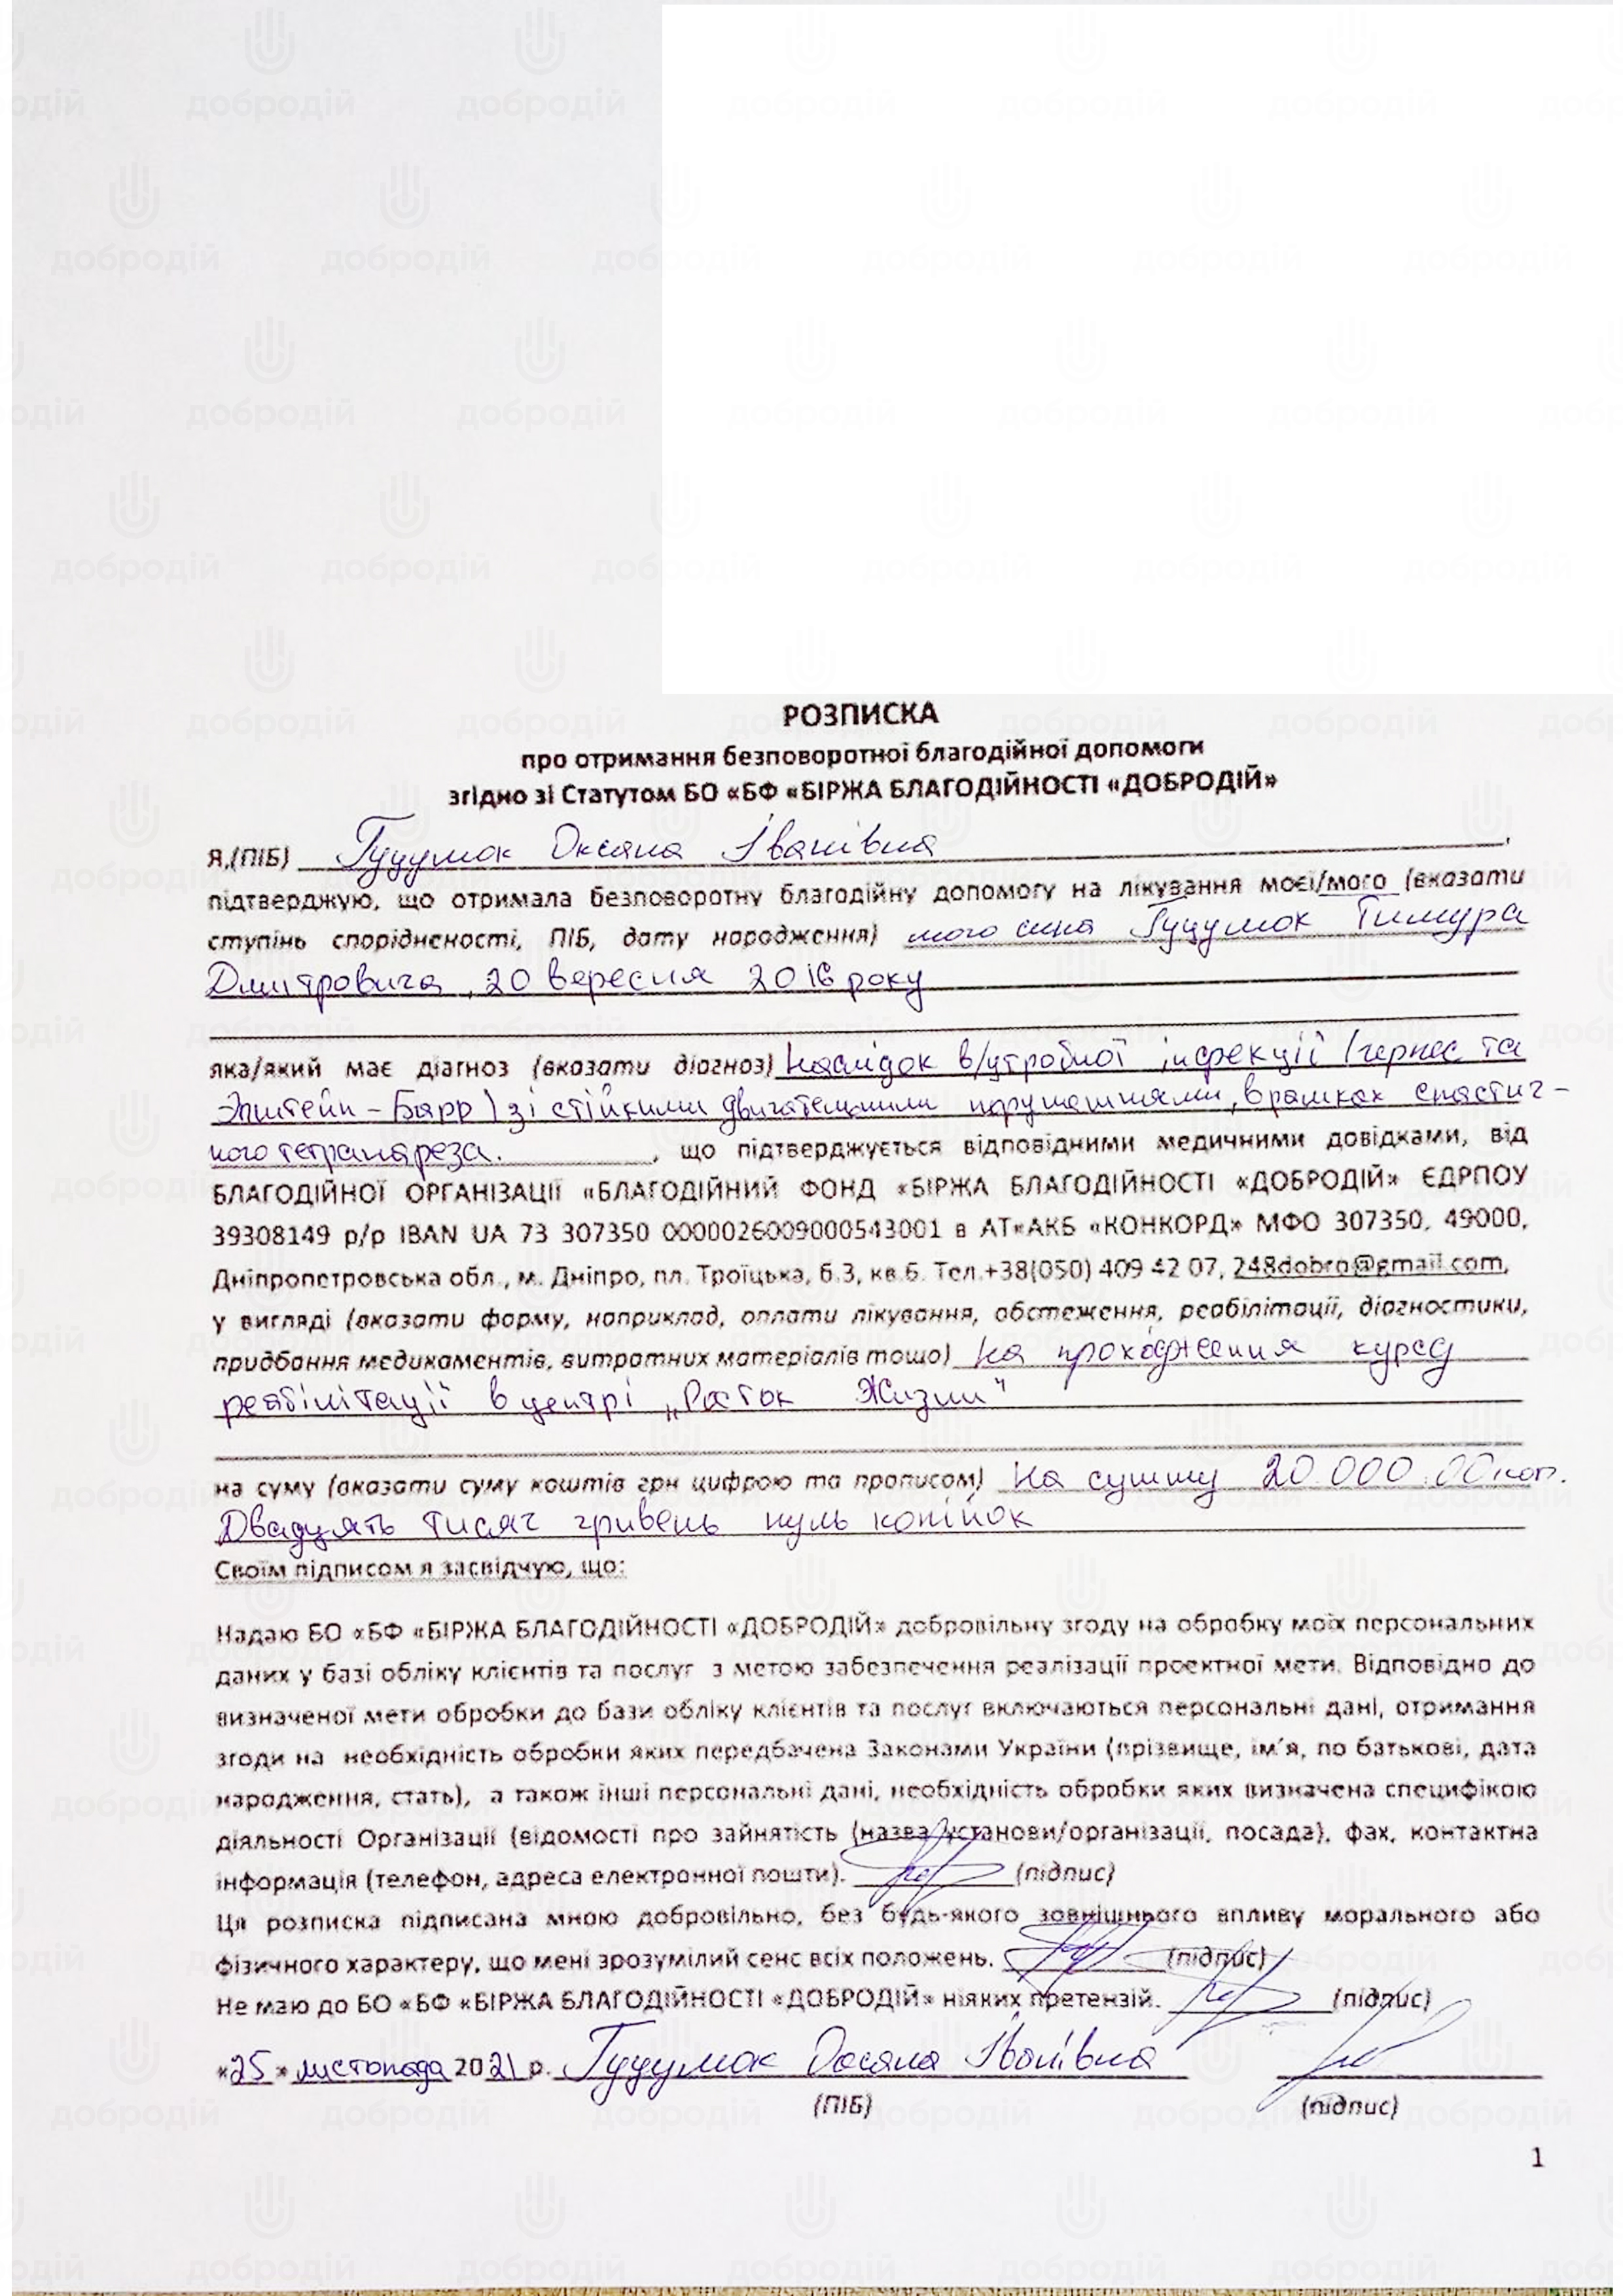 РОЗПИСКА
про отримання безповоротної благодійної допомоги
згідно зі Статутом БО «БФ «БІРЖА БЛАГОДІЙНОСТІ «ДОБРОДІЙ»
Я,(ПІБ) Гуцумок Оксана Іванівна,
підтверджую, що отримала безповоротну благодійну допомогу на лікування моєї/мого (вказати
ступінь спорідненості, ПІБ, дату народження) мого сина Гуцумок Тимура
Дмитровича, 20 вересня 2016 року
яка/який має діагноз (вказати діагноз) Наслідок в/утробної інфекції (герпес та
Эпштейн-Барр) зі стійкими двигательними порушеннями, в рамках спастич-
ного тетрапареза. , що підтверджується відповідними медичними довідками, від
БЛАГОДІЙНОЇ ОРГАНІЗАЦІЇ «БЛАГОДІЙНИЙ ФОНД «БІРЖА БЛАГОДІЙНОСТІ «ДОБРОДІЙ» ЄДРПОУ
39308149 р/р IBAN UA 73 307350 0000026009000543001 в АТ«АКБ «КОНКОРД» МФО 307350, 49000,
Дніпропетровська обл., м. Дніпро, пл. Троїцька, б.3, кв.6. Тел.+38(050) 409 42 07, 248dobro@gmail.com,
у вигляді (вказати форму, наприклад, оплати лікування, обстеження, реабілітації, діагностики,
придбання медикаментів, витратних матеріалів тощо) На проходження курсу
реабілітації в центрі „Росток Жизни"
на суму (вказати суму коштів грн цифрою та прописом) На сумму 20.000.00коп.
Двадцять тисяч гривень нуль копійок
Своїм підписом я засвідчую, що:
Надаю БО «БФ «БІРЖА БЛАГОДІЙНОСТІ «ДОБРОДІЙ» добровільну згоду на обробку моїх персональних
даних у базі обліку клієнтів та послуг з метою забезпечення реалізації проектної мети. Відповідно до
визначеної мети обробки до бази обліку клієнтів та послуг включаються персональні дані, отримання
згоди на необхідність обробки яких передбачена Законами України (прізвище, ім'я, по батькові, дата
народження, стать), а також інші персональні дані, необхідність обробки яких визначена специфікою
діяльності Організації (відомості про зайнятість (назва установи/організації, посада), фах, контактна
інформація (телефон, адреса електронної пошти). (підпис)
Ця розписка підписана мною добровільно, без будь-якого зовнішнього впливу морального або
фізичного характеру, що мені зрозумілий сенс всіх положень. (підпис)
Не маю до БО «БФ «БІРЖА БЛАГОДІЙНОСТІ «ДОБРОДІЙ» ніяких претензій. (підпис)
«25» листопада 2021 р. Гуцумок Оксана Іванівна
(ПІБ) (підпис)
1